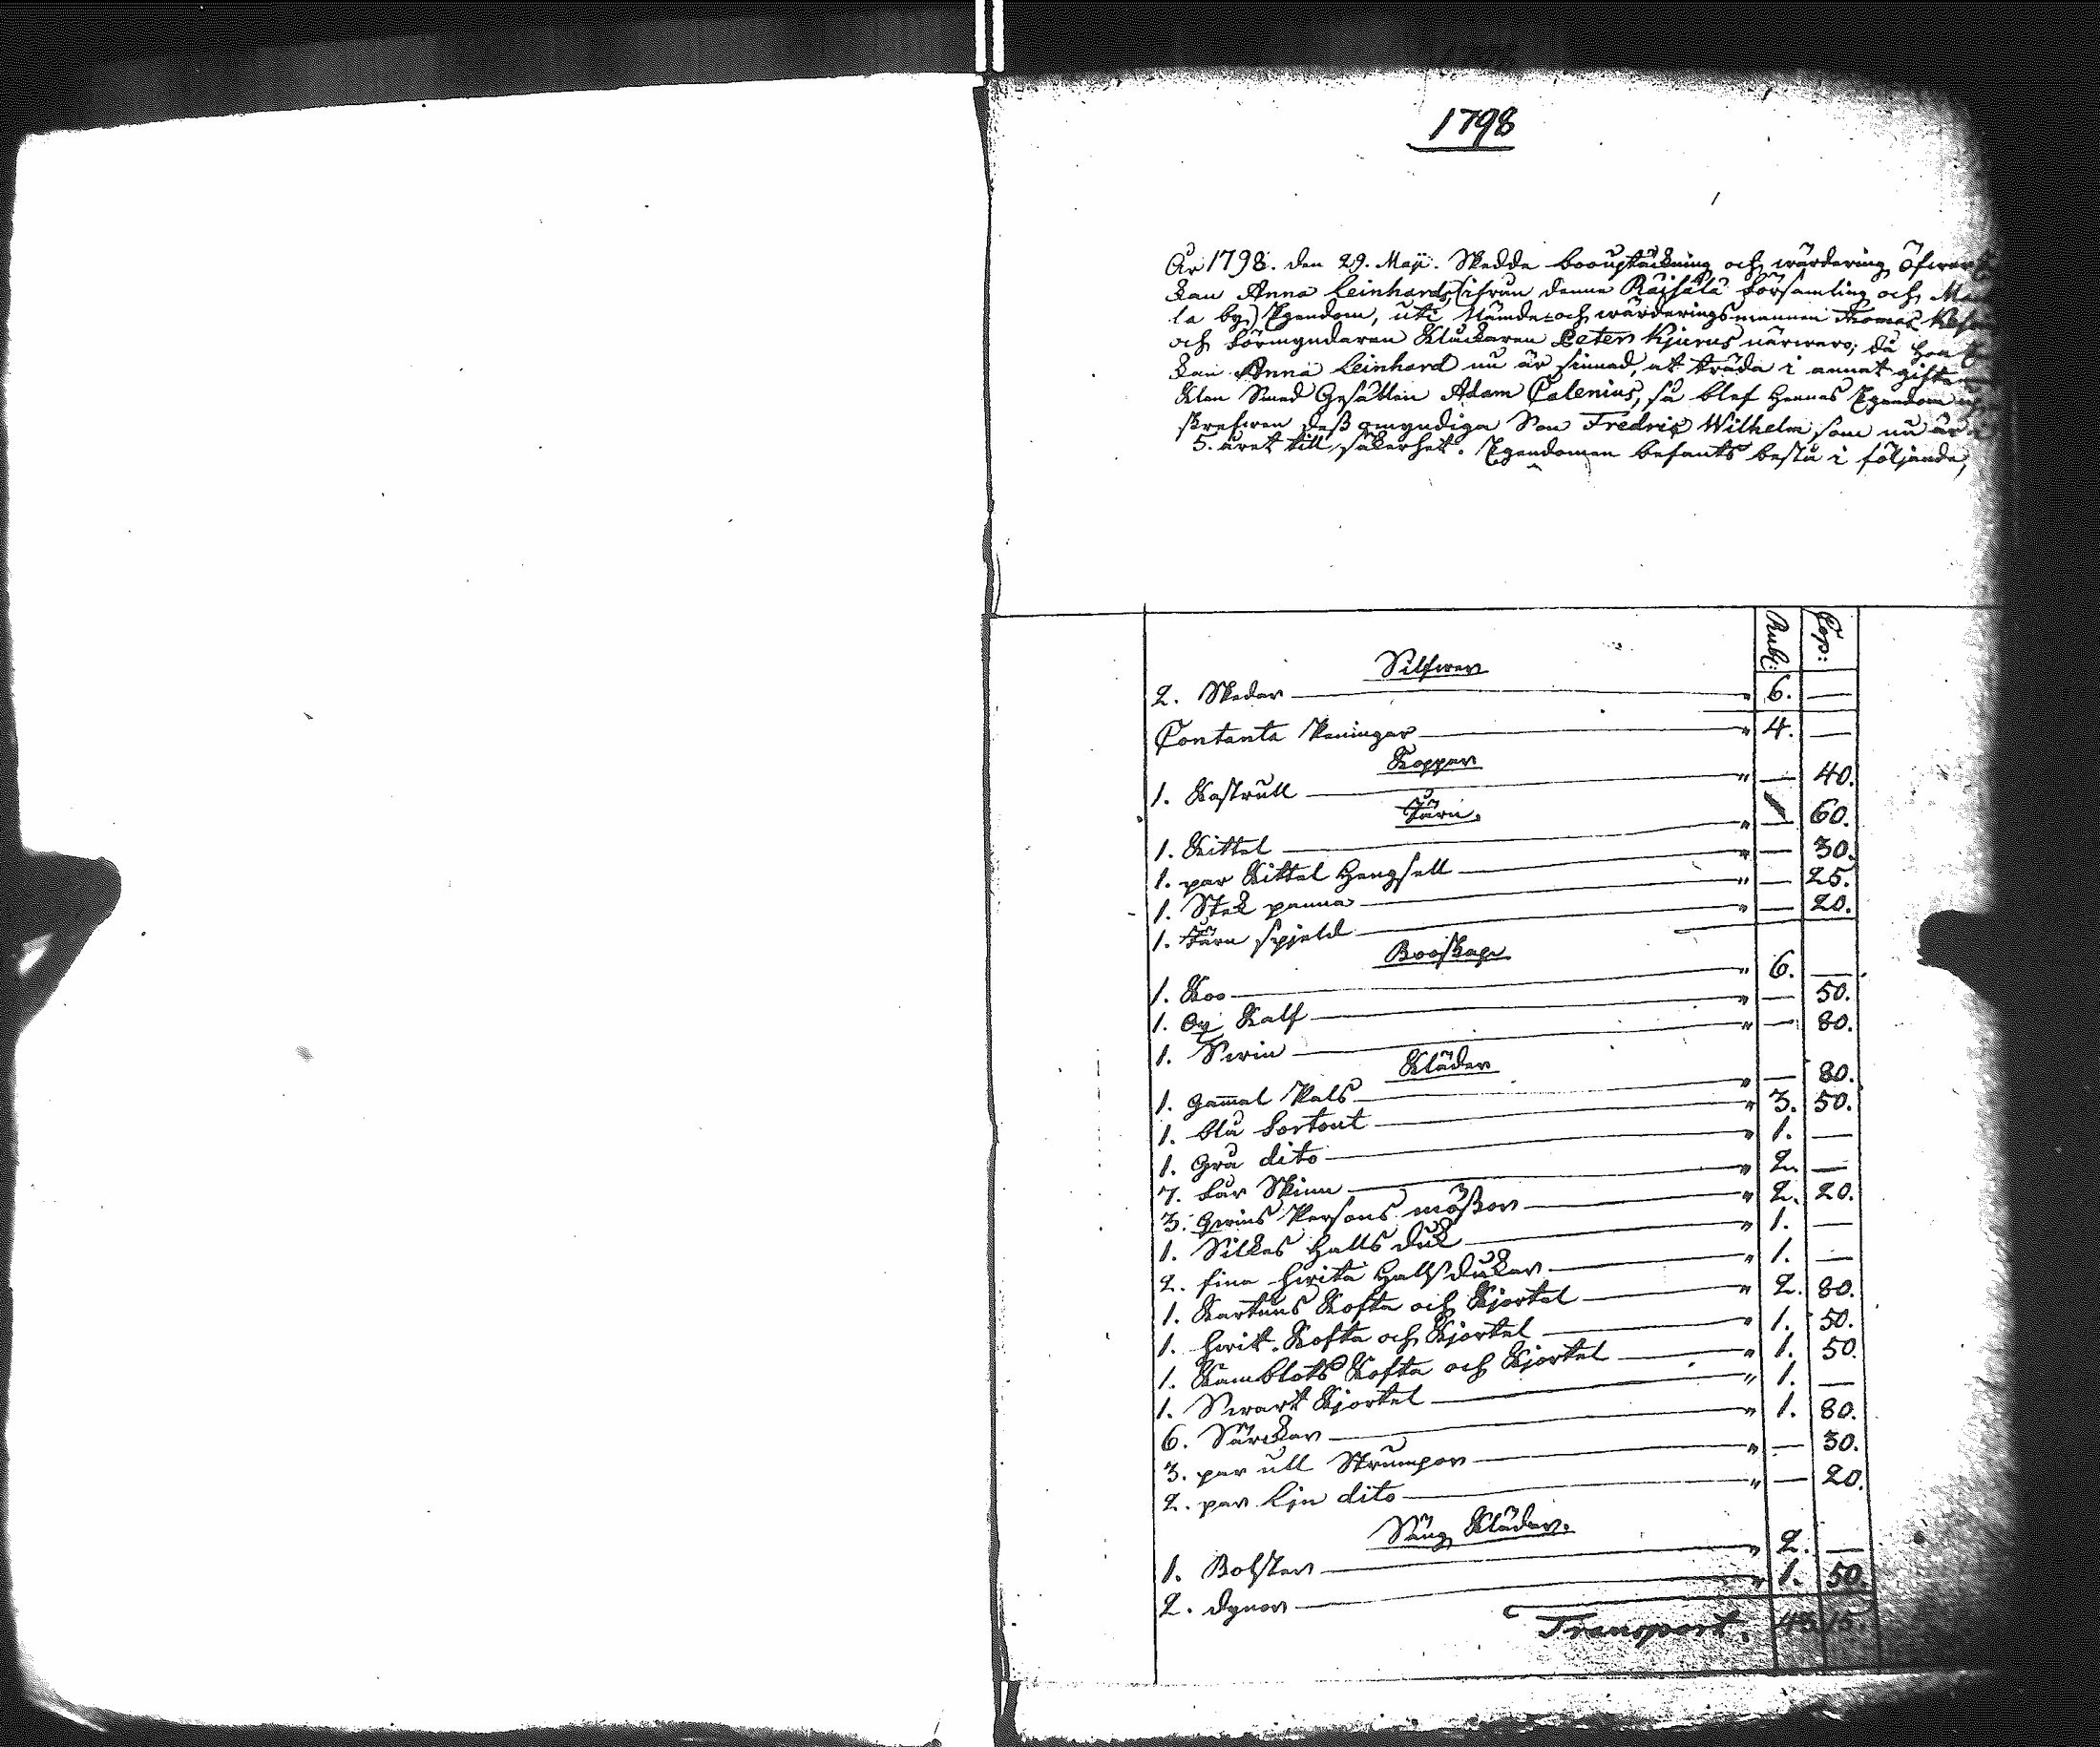 1798
År 1798. den 29. Maji. Skedde booupteckning och wärdering öfwer
kan Anna Leinhards (ifrån denna Räisälä församling och
la by) Egendom, uti Nämde- och wärderingsmannen Thomas
och förmyndaren Kluckaren Peter Kjurus närwaro; då
kan Anna Leinhard nu är sinnad, at träda i annat gifte
Klen Smed Gesällen Adam Calenius, så blef hennes Egendom
skrefwen dess omyndiga Son Fredric Wilhelm som nu är
5. året till säkerhet. Egendomen befants bestå i följande,
Rubl: Cop:
Silfwer
2. Skedar — " 6. —
Contanta Peningar — " 4. —
Koppar
1. Kastrull — " — 40.
Järn.
1. Kittel — " — 60.
1. par Kittel Hengsell — " — 30.
1. Stek panna — " — 25.
1. Järn spjeld — " — 20.
Booskap
1. Koo — " 6. —
1. Ox Kalf — " — 50.
1. Swin — " — 80.
Kläder
1. Gam̄al Pals — " — 80.
1. blå Sortout — " 3. 50.
1. Grå dito — " 1. —
7. får Skinn — " 2. —
3. Qwins Persons mössor — " 2. 20.
1. Silkes Halls duk — " 1. —
2. fina hwita Halsdukar — " 1. —
1. Kartuns Kofta och Kjortel — " 2. 80.
1. hwit Kofta och Kjortel — " 1. 50.
1. Kamblots Kofta och Kjortel — " 1. 50.
1. Swart Kjortel — " 1. —
6. Särckar — " 1. 80.
3. par ull Strumpor — " — 30.
2. par Lin dito — " — 20.
Säng Kläder.
1. Bolster — " 2. —
2. dynor — " 1. 50.
Transport. 43 15.